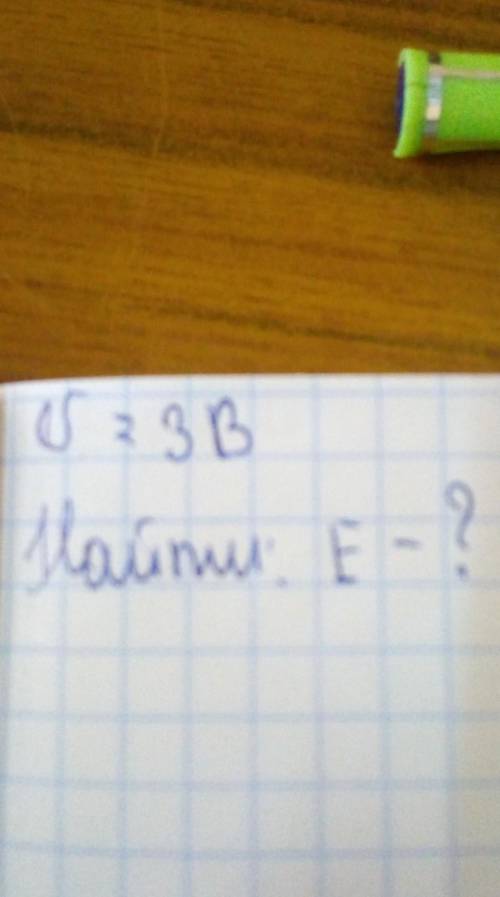 U = 3 В
Найти: E - ?